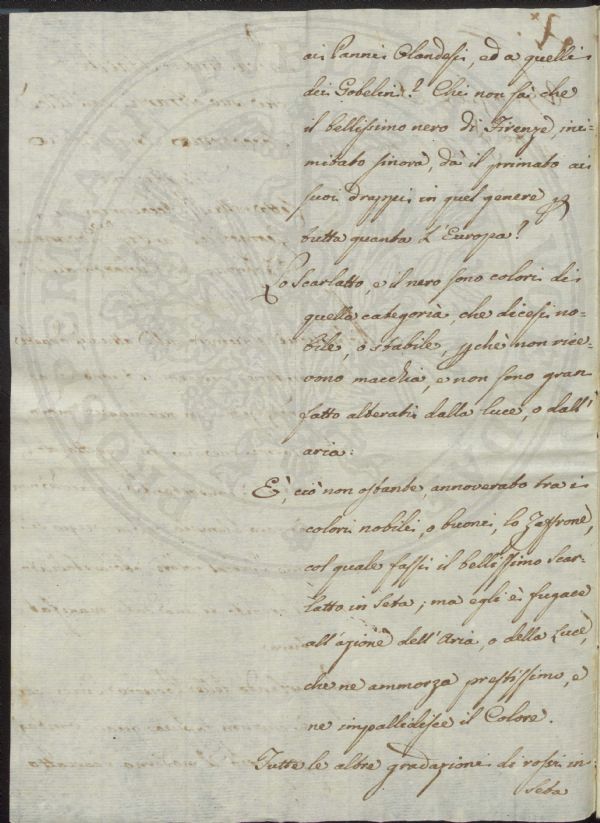 ai Panni Olandesi, ed a quelli
dei Gobelins? Chi non sà che
il bellissimo nero di Firenze ini-
mitato sinora, dà il primato ai
suoi drappi in quel genere
tutta quanta l'Europa?
Lo Scarlatto, e il nero sono colori di
quella categoria, che dicesi no-
bile, o stabile, pchè non rice-
vono macchia, e non sono gran
fatto alterati dalla luce, o dall'
aria:
È, ciò non ostante, annoverato tra i
colori nobili, o buoni, lo Zaffrone,
col quale fassi il bellissimo Scar-
latto in Seta; ma egli è fugace
all'azione dell'Aria, o della Luce,
che ne ammorza prestissimo, e
ne impallidisce il Colore.
Tutte le altre gradazioni di rossi in
Seta
PROSPERITATI PUBLICAE